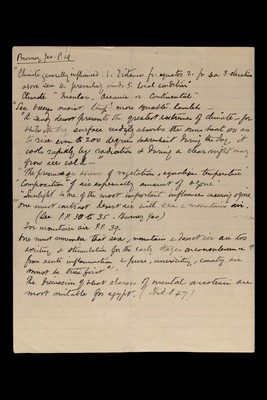 Burney Yeo - P. 19
Climate generally influenced - 1. Distance fr. equator 2. fr. sea 3. elevation
above sea 4. prevailing winds 5. local conditions
Climate "Insular, Oceanic or Continental"
"Sea breeze moist temp" more equable humid -
"A sandy desert presents the greatest extremes of climate - for
whilst the dry surface readily absorbs the sun's heat so as
to rise even to 200 degrees Fahrenheit during the day, it
cools rapidly by radiation & during a clear night may
grow ice cold -"
"The presence of vegetation, equalises temperature
"Composition of air especially amount of ozone"
"Sunlight is one of the most important influences
one must contrast desert air with sea & mountain air.
(See P.P. 30 to 35 - Burney Yeo)
For mountain air P.P. 39.
One must remember that sea, mountain & desert air are too
exciting & stimulating for the early stages
from acute inflammation & pure, country air
must be tried first".
The discussion of what classes of mental are
most suitable for Egypt. (P 47)